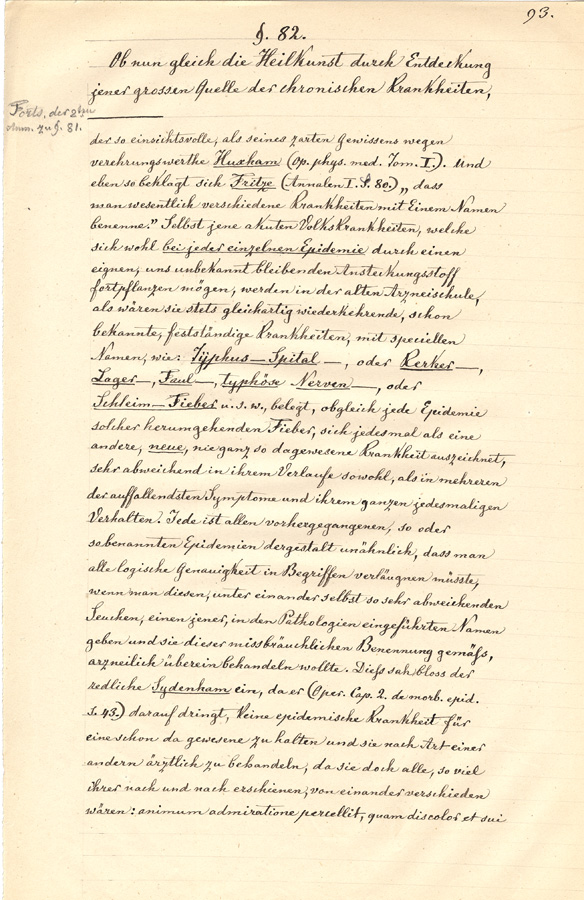 93.
§. 82.
Ob nun gleich die Heilkunst durch Entdeckung
jener grossen Quelle der chronischen Krankheiten,
Forts. der 2ten
Anm. zu §. 81.
der so einsichtsvolle, als seines zarten Gewissens wegen
verehrungswerthe Huxham (Op. phys. med. Tom. I.). Und
eben so beklagt sich Fritze (Annalen I. S. 80.) „dass
man wesentlich verschiedene Krankheiten mit Einem Namen
benenne." Selbst jene akuten Volkskrankheiten, welche
sich wohl bei jeder einzelnen Epidemie durch einen
eignen, uns unbekannt bleibenden Ansteckungsstoff
fortpflanzen mögen, werden in der alten Arzneischule,
als wären sie stets gleichartig wiederkehrende, schon
bekannte, festständige Krankheiten, mit speciellen
Namen, wie: Tÿphus—Spital—, oder Kerker—,
Lager—, Faul—, typhöse Nerven—, oder
Schleim—Fieber u. s. w., belegt, obgleich jede Epidemie
solcher herumgehenden Fieber, sich jedesmal als eine
andere, neue, nie ganz so dagewesene Krankheit auszeichnet,
sehr abweichend in ihrem Verlaufe sowohl, als in mehreren
der auffallendsten Symptome und ihrem ganzen jedesmaligen
Verhalten. Jede ist allen vorhergegangenen, so oder
so benannten Epidemien dergestalt unähnlich, dass man
alle logische Genauigkeit in Begriffen verläugnen müsste,
wenn man diesen, unter einander selbst so sehr abweichenden
Seuchen, einen jener, in den Pathologien eingeführten Namen
geben und sie dieser missbräuchlichen Benennung gemäß,
arzneilich überein behandeln wollte. Dieß sah bloss der
redliche Sydenham ein, da er (Oper. Cap. 2. de morb. epid.
S. 43.) darauf dringt, keine epidemische Krankheit für
eine schon da gewesene zu halten und sie nach Art einer
andern ärztlich zu behandeln, da sie doch alle, so viel
ihrer nach und nach erschienen, von einander verschieden
wären: animum admiratione percellit, quam discolor et sui